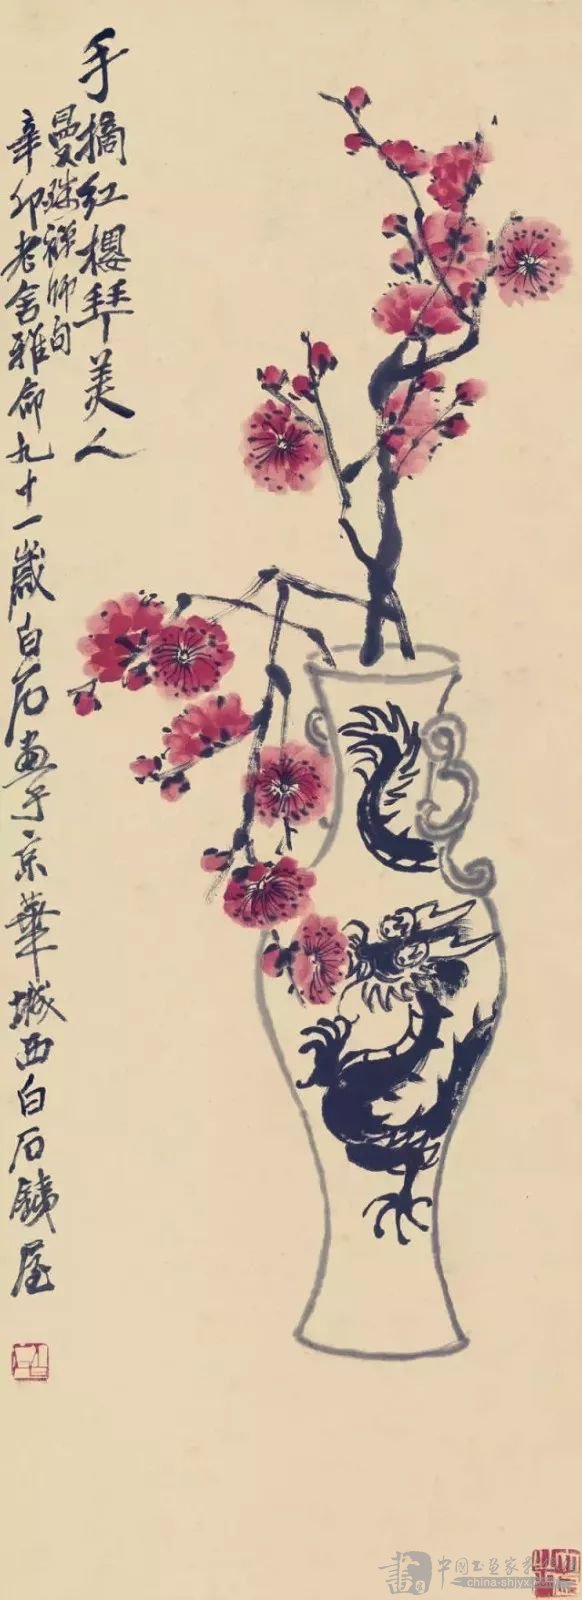 手摘红樱拜美人
曼殊禅师句
辛卯老舍雅命九十一岁白石画于京華城西白石鐵屋
中国书画家
china-shjyx.com